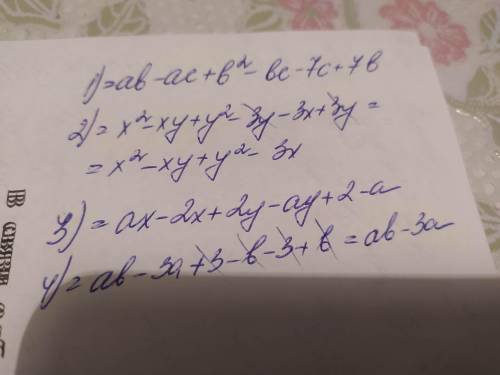 1) = ab - ac + b² - bc - 7c + 7b
2) = x² - xy + y² - 3y - 3x + 3y =
= x² - xy + y² - 3x
3) = ax - 2x + 2y - ay + 2 - a
4) = ab - 3a + 3 - b - 3 + b = ab - 3a
В связи